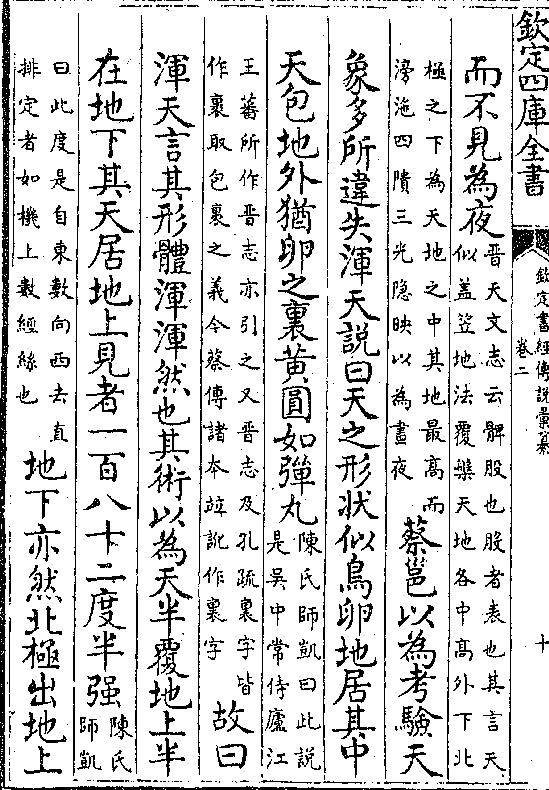 欽定四庫全書
欽定書經傳說彙纂
卷二
十
而不見為夜
晉天文志云髀股也股者表也其言天
似蓋笠地法覆槃天地各中高外下北
極之下為天地之中其地最高而
滂沲四隤三光隐映以為晝夜
蔡邕以為考驗天
象多所違失渾天說曰天之形狀似鳥卵地居其中
天包地外猶卵之裏黄圓如彈丸
陳氏師凱曰此說
是吳中常侍廬江
王蕃所作晉志亦引之又晉志及孔疏裏字皆
作裹取包裹之義今蔡傳諸本竝訛作裏字
故曰
渾天言其形體渾渾然也其術以為天半覆地上半
在地下其天居地上見者一百八十二度半强
陳氏
師凱
曰此度是自東數向西去直
排定者如機上數經絲也
地下亦然北極出地上